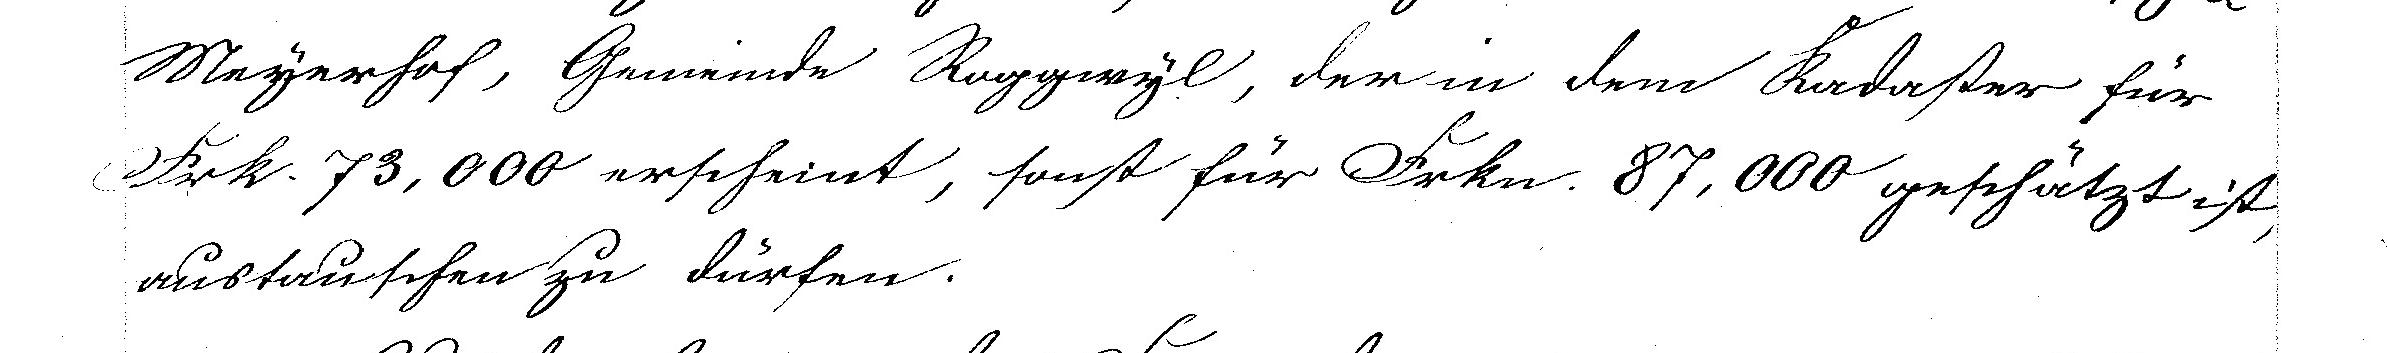 Meyerhof, Gemeinde Roggwyl, der in dem Kadaster für
Frk. 73,000 erscheint, sonst für Frkn. 87,000 geschätzt ist,
austauschen zu dürfen.